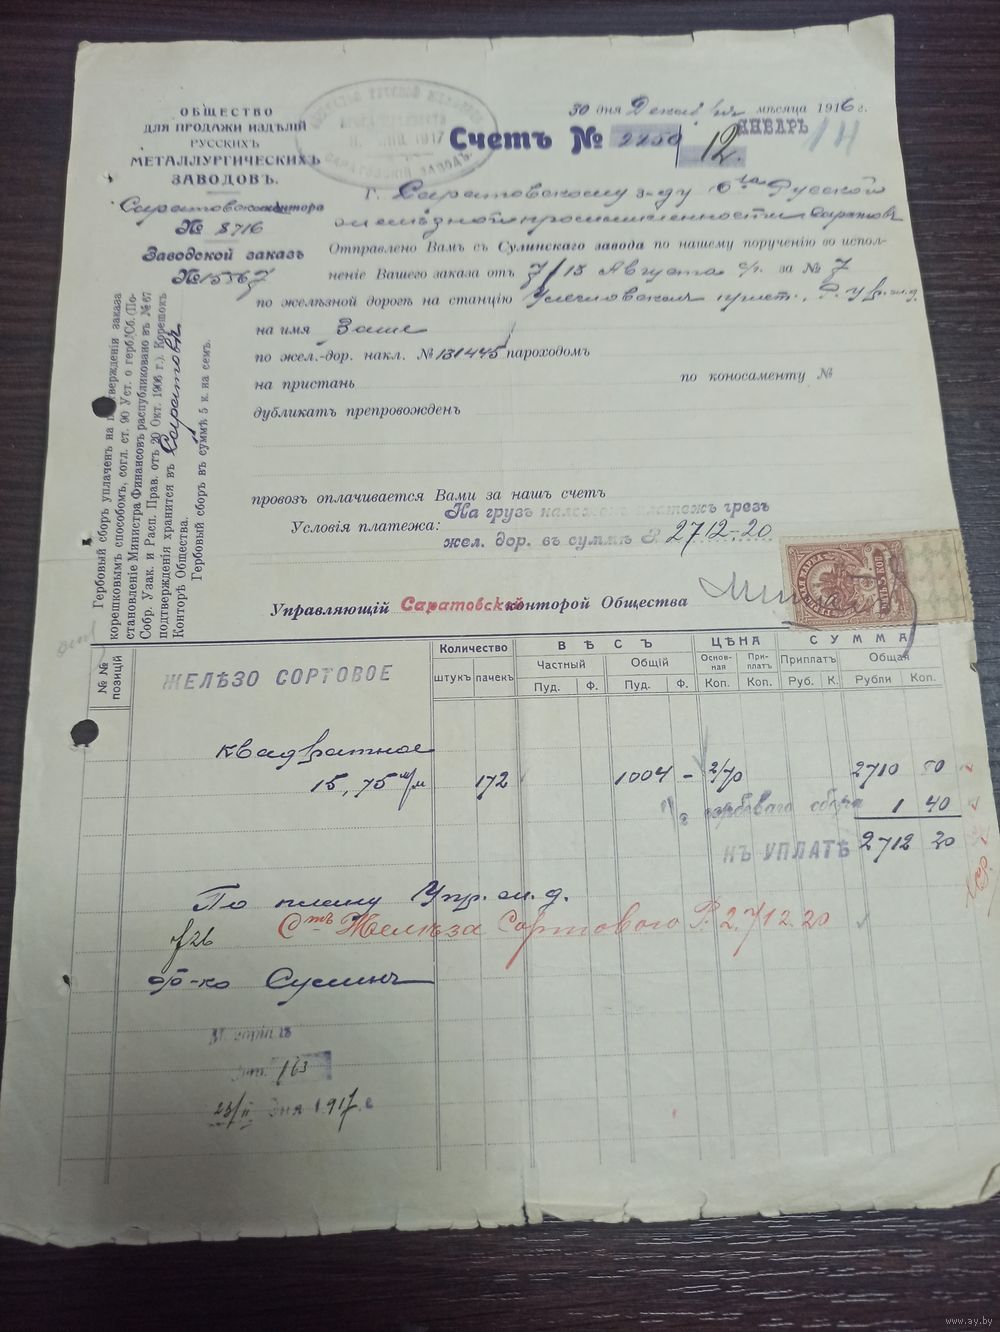 ОБЩЕСТВО
ДЛЯ ПРОДАЖИ ИЗДѢЛІЙ
РУССКИХЪ
МЕТАЛЛУРГИЧЕСКИХЪ
ЗАВОДОВЪ.
Саратовская контора
№ 8716
Заводской заказъ
№ 15567
30 дня Декабря мѣсяца 1916 г.
Счетъ № 2250 / 12.
ЯНВАРЬ
Г. Саратовскому з-ду О-ва Русской
желѣзной промышленности Саратовъ
Отправлено Вамъ съ Сулинскаго завода по нашему порученію во испол-
неніе Вашего заказа отъ 7/13 Августа с/г. за № 7
по желѣзной дорогѣ на станцію
на имя Ваше
по жел.-дор. накл. № 131445 пароходомъ
на пристань по коносаменту №
дубликатъ препровожденъ
провозъ оплачивается Вами за нашъ счетъ
Условія платежа: На грузъ наложенъ платежъ чрезъ
жел. дор. въ суммѣ Р. 2712-20
Управляющій Саратовской конторой Общества
Гербовый сборъ уплаченъ на подтвержденіи заказа
корешковымъ способомъ, согл. ст. 90 Уст. о герб. Сб. (По-
становленіе Министра Финансовъ распубликовано въ № 67
Собр. Узак. и Расп. Прав. отъ 20 Окт. 1906 г.). Корешокъ
подтвержденія хранится въ Саратовѣ
Конторѣ Общества.
Гербовый сборъ въ суммѣ 5 к. на семъ.
ГЕРБОВАЯ МАРКА
№ № позицій
ЖЕЛѢЗО СОРТОВОЕ
Количество
штукъ пачекъ
ВѢСЪ
Частный Общій
Пуд. Ф. Пуд. Ф.
ЦѢНА
Основ-ная При-платъ
Коп. Коп.
СУММА
Приплатъ Общая
Руб. К. Рубли Коп.
Квадратное
15,75 м/м 172 1004 - 2/70 2710 80
гербоваго сбора 1 40
КЪ УПЛАТѢ 2712 20
По плану Упр. ж. д.
Сч. Желѣза Сортового Р. 2.712.20
f 26
ф-ко Сулинъ
163
23/II дня 1917 г
www.ay.by